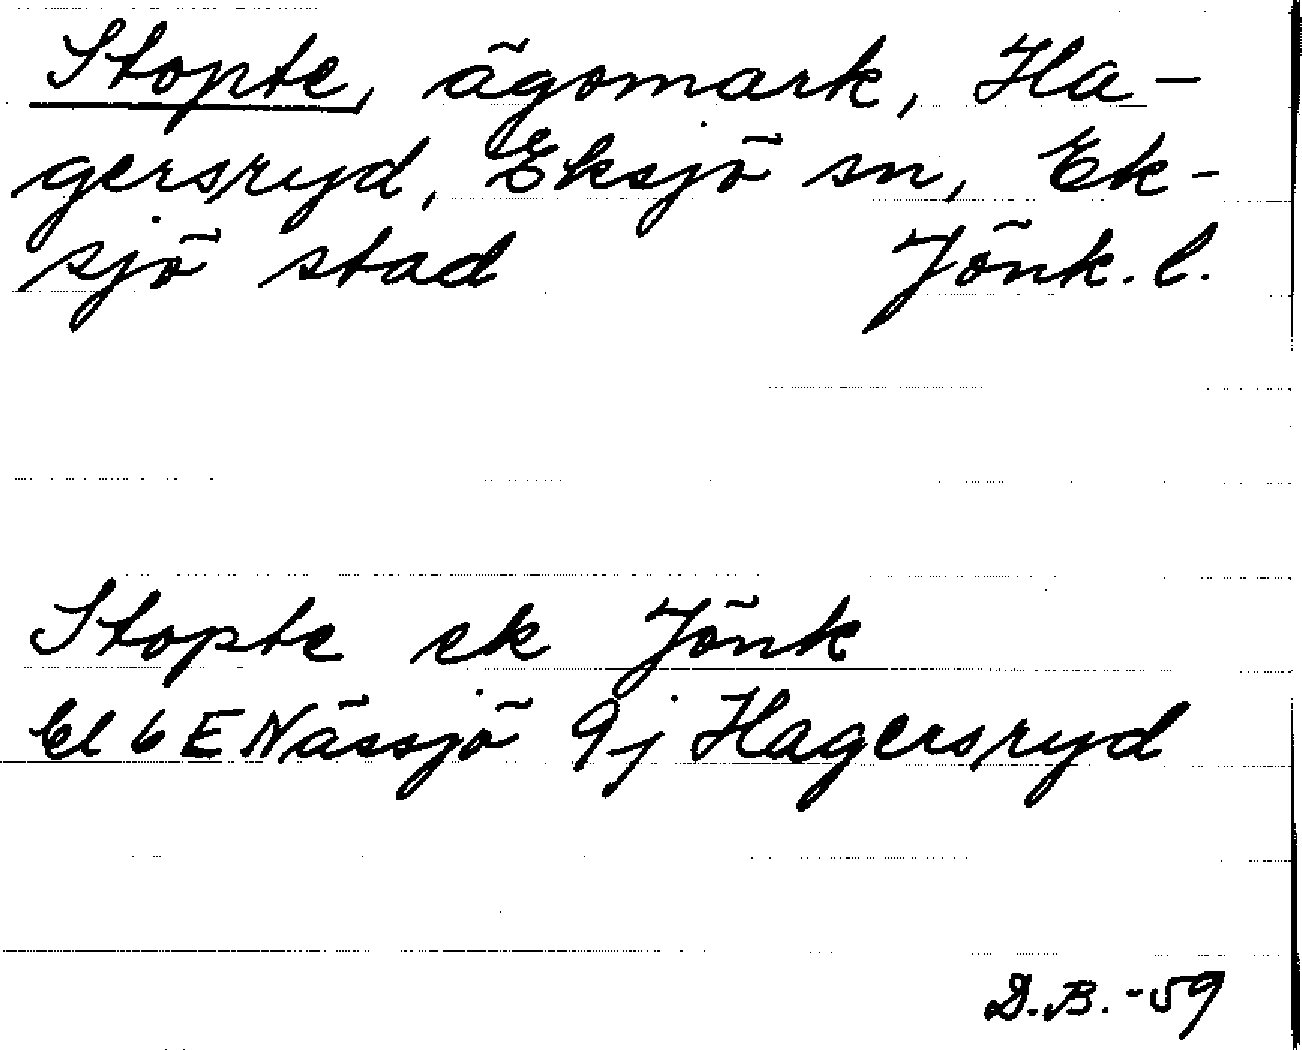 Stopte, ägomark, Ha-
gersryd, Eksjö sn, Ek-
sjö stad Jönk. l.
Stopte ek Jönk
bl 6 E Nässjö 9j Hagersryd
D.B. -59